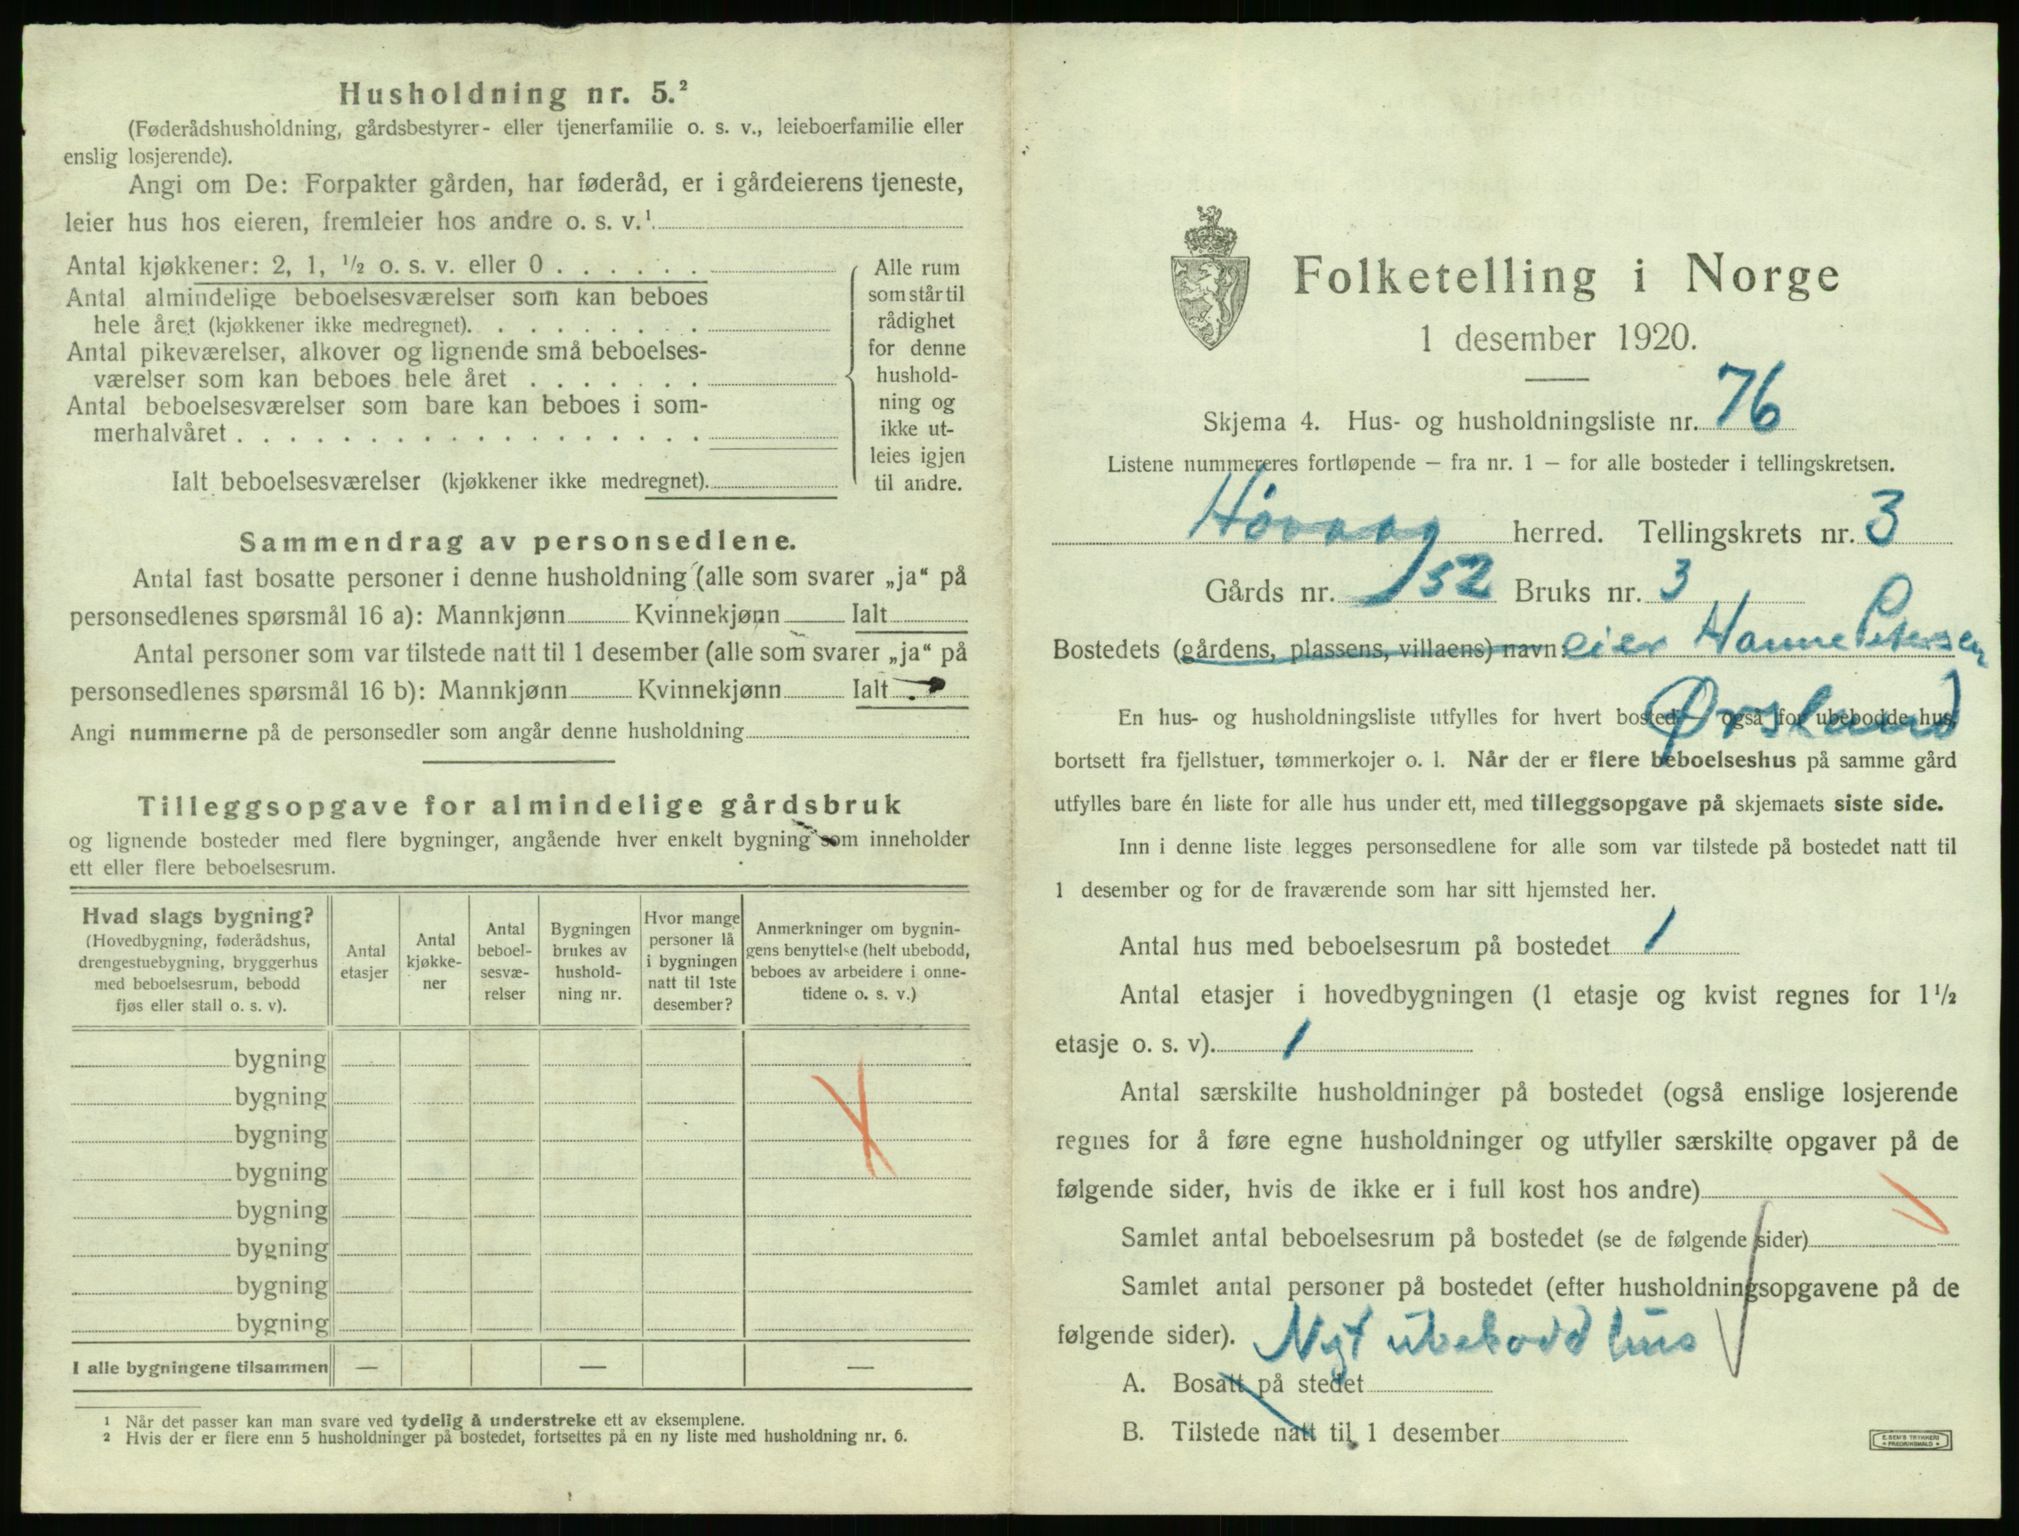 Husholdning nr. 5.²
(Føderådshusholdning, gårdsbestyrer- eller tjenerfamilie o. s. v., leieboerfamilie eller
enslig losjerende).
Angi om De: Forpakter gården, har føderåd, er i gårdeierens tjeneste,
leier hus hos eieren, fremleier hos andre o. s. v.¹
Antal kjøkkener: 2, 1, ½ o. s. v. eller 0 . . . . . .
Antal almindelige beboelsesværelser som kan beboes
hele året (kjøkkener ikke medregnet). . . . . . . . .
Antal pikeværelser, alkover og lignende små beboelses-
værelser som kan beboes hele året . . . . . . .
Antal beboelsesværelser som bare kan beboes i som-
merhalvåret . . . . . . . . . . . . . . . . . .
Ialt beboelsesværelser (kjøkkener ikke medregnet).
Alle rum
som står til
rådighet
for denne
hushold-
ning og
ikke ut-
leies igjen
til andre.
Sammendrag av personsedlene.
Antal fast bosatte personer i denne husholdning (alle som svarer „ja“ på
personsedlenes spørsmål 16 a): Mannkjønn Kvinnekjønn Ialt
Antal personer som var tilstede natt til 1 desember (alle som svarer „ja“ på
personsedlenes spørsmål 16 b): Mannkjønn Kvinnekjønn Ialt
Angi nummerne på de personsedler som angår denne husholdning
Tilleggsopgave for almindelige gårdsbruk
og lignende bosteder med flere bygninger, angående hver enkelt bygning som inneholder
ett eller flere beboelsesrum.
Hvad slags bygning?
(Hovedbygning, føderådshus,
drengestuebygning, bryggerhus
med beboelsesrum, bebodd
fjøs eller stall o. s. v).
Antal
etasjer
Antal
kjøkke-
ner
Antal
beboel-
sesvæ-
relser
Bygningen
brukes av
hushold-
ning nr.
Hvor mange
personer lå
i bygningen
natt til 1ste
desember?
Anmerkninger om bygnin-
gens benyttelse (helt ubebodd,
beboes av arbeidere i onne-
tidene o. s. v.)
bygning
bygning
bygning
bygning
bygning
bygning
bygning
bygning
I alle bygningene tilsammen — — —
1 Når det passer kan man svare ved tydelig å understreke ett av eksemplene.
2 Hvis der er flere enn 5 husholdninger på bostedet, fortsettes på en ny liste med husholdning nr. 6.
Folketelling i Norge
1 desember 1920.
Skjema 4. Hus- og husholdningsliste nr. 76
Listene nummereres fortløpende – fra nr. 1 – for alle bosteder i tellingskretsen.
Høvaag herred. Tellingskrets nr. 3
Gårds nr. 152 Bruks nr. 3
Bostedets (gårdens, plassens, villaens) navn eier Hanne Petersen
Ørslund
En hus- og husholdningsliste utfylles for hvert bosted – også for ubebodde hus,
bortsett fra fjellstuer, tømmerkojer o. l. Når der er flere beboelseshus på samme gård
utfylles bare én liste for alle hus under ett, med tilleggsopgave på skjemaets siste side.
Inn i denne liste legges personsedlene for alle som var tilstede på bostedet natt til
1 desember og for de fraværende som har sitt hjemsted her.
Antal hus med beboelsesrum på bostedet 1
Antal etasjer i hovedbygningen (1 etasje og kvist regnes for 1½
etasje o. s. v). 1
Antal særskilte husholdninger på bostedet (også enslige losjerende
regnes for å føre egne husholdninger og utfyller særskilte opgaver på de
følgende sider, hvis de ikke er i full kost hos andre)
Samlet antal beboelsesrum på bostedet (se de følgende sider)
Samlet antal personer på bostedet (efter husholdningsopgavene på de
følgende sider). Nyt ubebodd hus
A. Bosatt på stedet
B. Tilstede natt til 1 desember
E. SEM'S TRYKKERI
FREDRIKSHALD